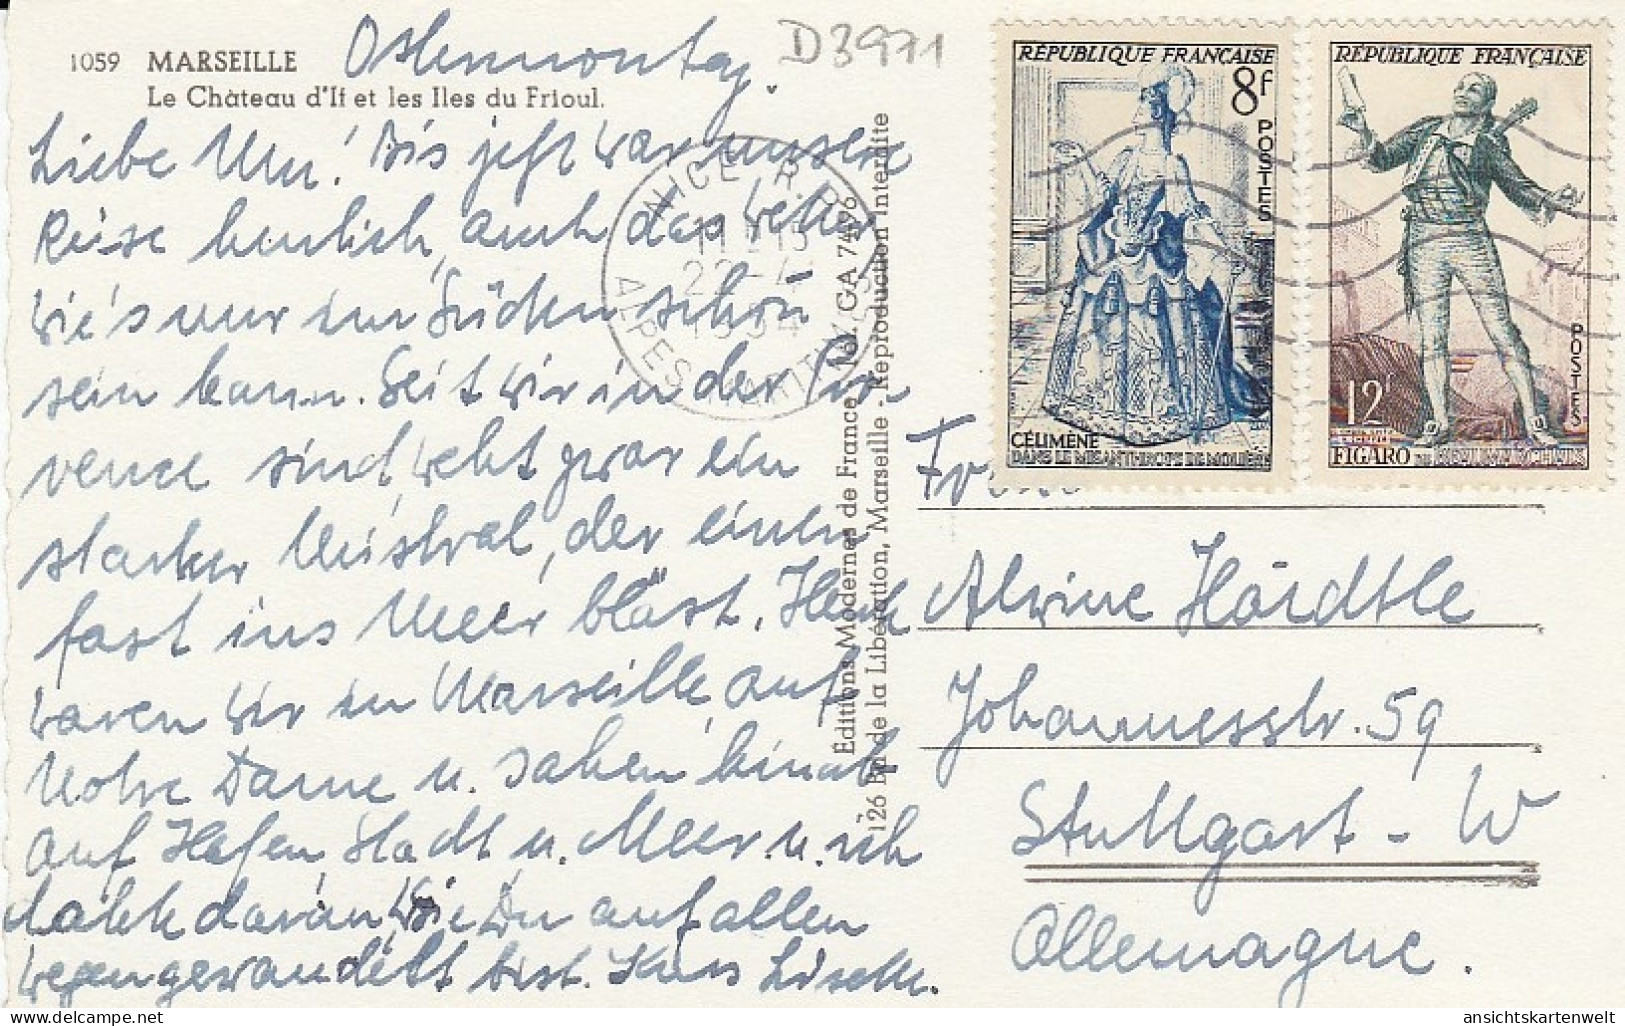 1059 MARSEILLE
Le Château d'If et les Iles du Frioul.
Ostermontag.
D3971
Liebe Mu! Bis jetzt war unsere
Reise herrlich, auch das Wetter
wie's nur im Süden schön
sein kann. Seit wir in der Pro-
vence sind, weht zwar ein
starker Mistral, der einen
fast ins Meer bläst. Heute
waren wir in Marseille, auf
Notre Dame u. sahen hinab
auf Hafen Stadt u. Meer. u. ich
dachte daran, wie Du auf allen
Wegen gewandelt bist. Kuss
Éditions Modernes de France Mod. GA 7496
126 Rue de la Libération, Marseille - Reproduction Interdite
NICE R.P.
22-4
1954
ALPES MARITIMES
RÉPUBLIQUE FRANÇAISE
8f
POSTES
CÉLIMÈNE
DANS LE MISANTHROPE DE MOLIÈRE
RÉPUBLIQUE FRANÇAISE
12f
POSTES
FIGARO DE BEAUMARCHAIS
Alwine Haidtle
Johannesstr. 59
Stuttgart - W
Allemagne.
ansichtskartenwelt